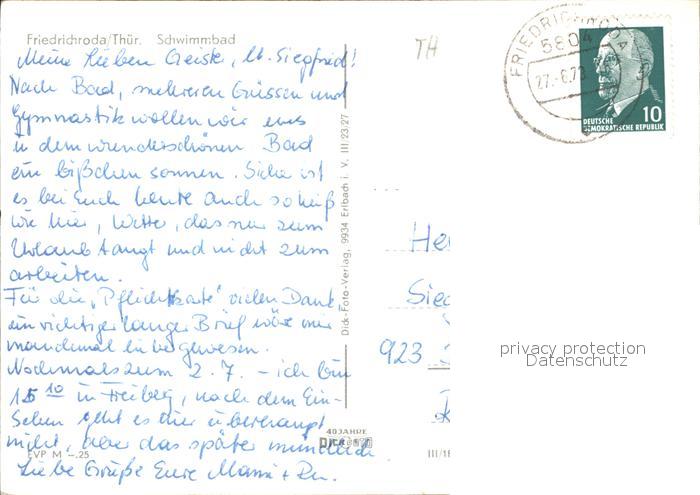 Friedrichroda/Thür. Schwimmbad
TH
FRIEDRICHRODA
5804
27.-6.70
10
DEUTSCHE
DEMOKRATISCHE REPUBLIK
Meine lieben Geister, lb. Siegfried!
Nach Bad, mehreren Güssen und
Gymnastik wollen wir uns
in dem wunderschönen Bad
ein bißchen sonnen. Sicher ist
es bei Euch heute auch so heiß
wie hier, Wetter, das nur zum
Urlaub taugt und nicht zum
arbeiten.
Für die "Pflichtkarte" vielen Dank,
ein richtiger langer Brief wäre mir
manchmal lieber gewesen.
Nochmals zum 2.7. - ich bin
15 10 in Freiberg, nach dem Ein-
sehen geht es hier überhaupt
nicht, aber das später mündlich
Liebe Grüße Eure Mami +
Dick-Foto-Verlag, 9934 Erlbach i. V. III/23/27
Her
Sieg
923
privacy protection
Datenschutz
40 JAHRE
DICK
EVP M -.25
III/18